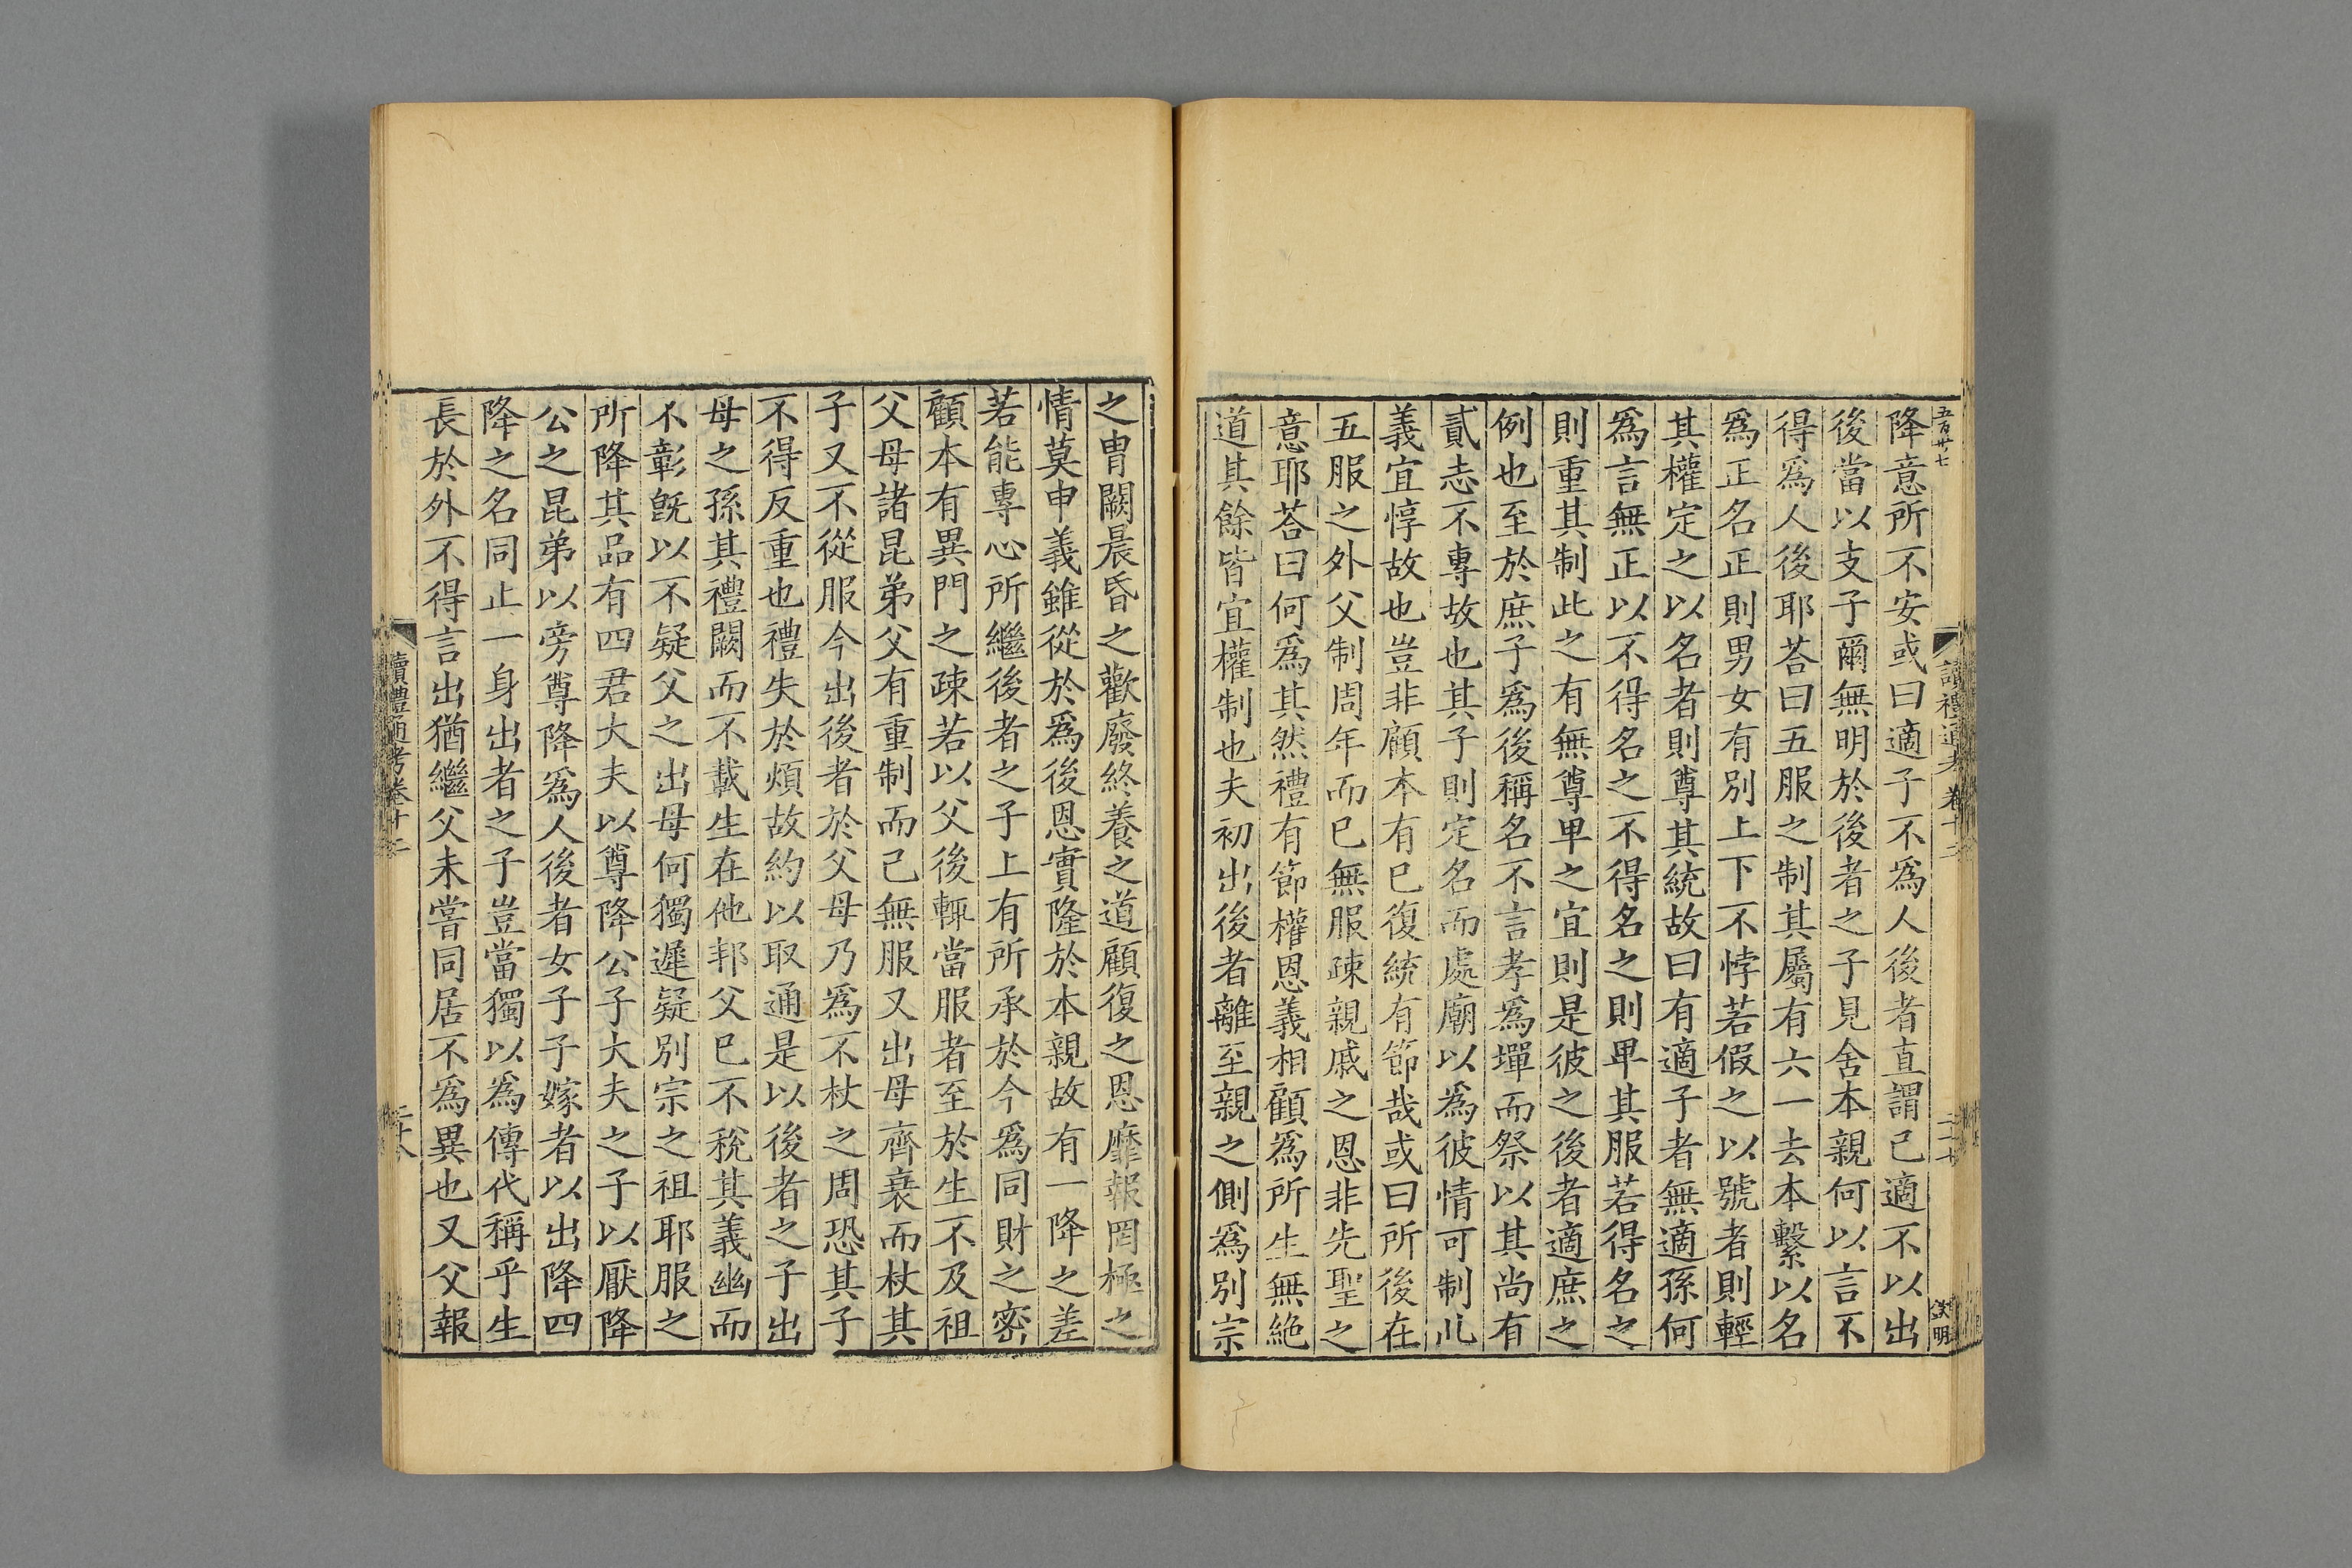 五百廿七
讀禮通考卷十二
欽明
降意所不安或曰適子不爲人後者直謂已適不以出
後當以支子爾無明於後者之子見舍本親何以言不
得爲人後耶荅曰五服之制其屬有六一去本繫以名
爲正名正則男女有別上下不悖若假之以號者則輕
其權定之以名者則尊其統故曰有適子者無適孫何
爲言無正以不得名之不得名之則卑其服若得名之
則重其制此之有無尊卑之宜則是彼之後者適庶之
例也至於庶子爲後稱名不言孝爲墠而祭以其尚有
貳志不專故也其子則定名而處廟以爲彼情可制此
義宜惇故也豈非顧本有已復統有節哉或曰所後在
五服之外父制周年而已無服疎親戚之恩非先聖之
意耶荅曰何爲其然禮有節權恩義相顧爲所生無絶
道其餘皆宜權制也夫初出後者離至親之側爲別宗
之胄闕晨昏之歡廢終養之道顧復之恩靡報罔極之
情莫申義雖從於爲後恩實隆於本親故有一降之差
若能專心所繼後者之子上有所承於今爲同財之密
顧本有異門之疎若以父後輒當服者至於生不及祖
父母諸昆弟父有重制而己無服又出母齊衰而杖其
子又不從服今出後者於父母乃爲不杖之周恐其子
不得反重也禮失於煩故約以取通是以後者之子出
母之孫其禮闕而不載生在他邦父巳不稅其義幽而
不彰旣以不疑父之出母何獨遲疑別宗之祖耶服之
所降其品有四君大夫以尊降公子大夫之子以厭降
公之昆弟以旁尊降爲人後者女子子嫁者以出降四
降之名同止一身出者之子豈當獨以爲傳代稱乎生
長於外不得言出猶繼父未嘗同居不爲異也又父報
讀禮通考卷十二